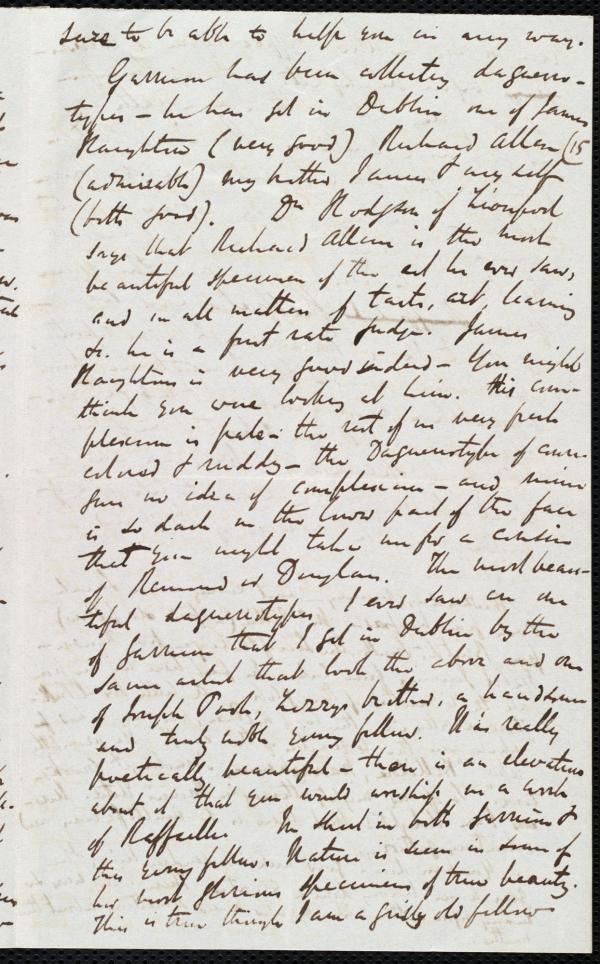 sure to be able to help you in any way.
Garrison has been collecting daguerro-
types - he has got in Dublin one of James
Haughton (very good) Richard Allen (15
(admirable) my brother James & myself
(both good). Dr Hodgson of Liverpool
says that Richard Allen is the most
beautiful specimen of the art he ever saw,
and in all matters of taste, art, learning
&c. he is a first rate judge. James
Haughton's is very good indeed - You might
think you were looking at him. His com-
plexion is pale - the rest of us very fresh
colored & ruddy - the Daguerrotype of course
gives no idea of complexion - and mine
is so dark in the lower part of the face
that you might take me for a cousin
of Remond or Douglass. The most beau-
tiful daguerrotypes I ever saw are one
of Garrison that I got in Dublin by the
same artist that took the above and one
of Joseph Poole, Lizzy's brother, a handsome
and truly noble young fellow. It is really
poetically beautiful - there is an elevation
about it that you would worship in a work
of Raffaelle. In both Garrison &
this young fellow. Nature is seen in some of
her most glorious specimens of true beauty.
This is true though I am a grisly old fellow